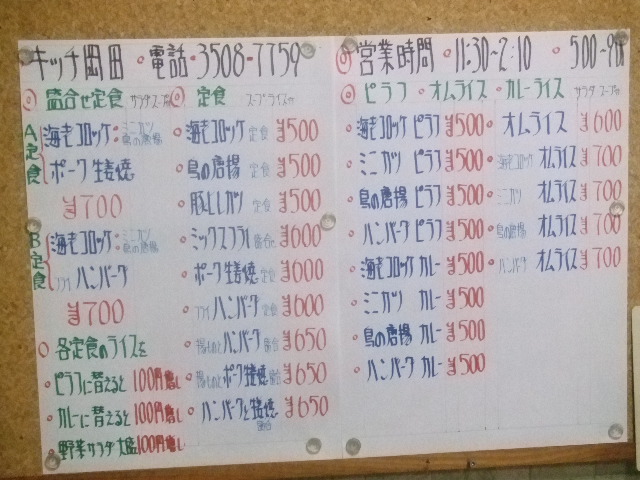 キッチン岡田・電話・3508-7759
◎営業時間・11:30~2:10・500~9
◎盛合せ定食 サラダスープ
A定食
海老コロッケ・ミニカツ・鳥の唐揚
ポーク生姜焼
¥700
B定食
海老コロッケ・ミニカツ・鳥の唐揚
フライ ハンバーグ
¥700
○各定食のライスを
・ピラフに替えると100円増し
・カレーに替えると100円増し
・野菜サラダ大盛100円増し
◎定食 スープライス付
・海老コロッケ 定食 ¥500
・鳥の唐揚 定食 ¥500
・豚ヒレカツ 定食 ¥500
・ミックスフライ 盛合せ ¥600
・ポーク生姜焼 定食 ¥600
・フライ ハンバーグ 定食 ¥600
ハンバーグ 盛合 ¥650
ポーク生姜焼 盛合 ¥650
・ハンバーグと生姜焼 盛合 ¥650
◎ピラフ・オムライス・カレーライス サラダスープ
・海老コロッケ ピラフ ¥500
・ミニカツ ピラフ ¥500
・鳥の唐揚 ピラフ ¥500
・ハンバーグ ピラフ ¥500
・海老コロッケ カレー ¥500
・ミニカツ カレー ¥500
・鳥の唐揚 カレー ¥500
・ハンバーグ カレー ¥500
・オムライス ¥600
・海老コロッケ オムライス ¥700
・ミニカツ オムライス ¥700
・鳥の唐揚 オムライス ¥700
・ハンバーグ オムライス ¥700